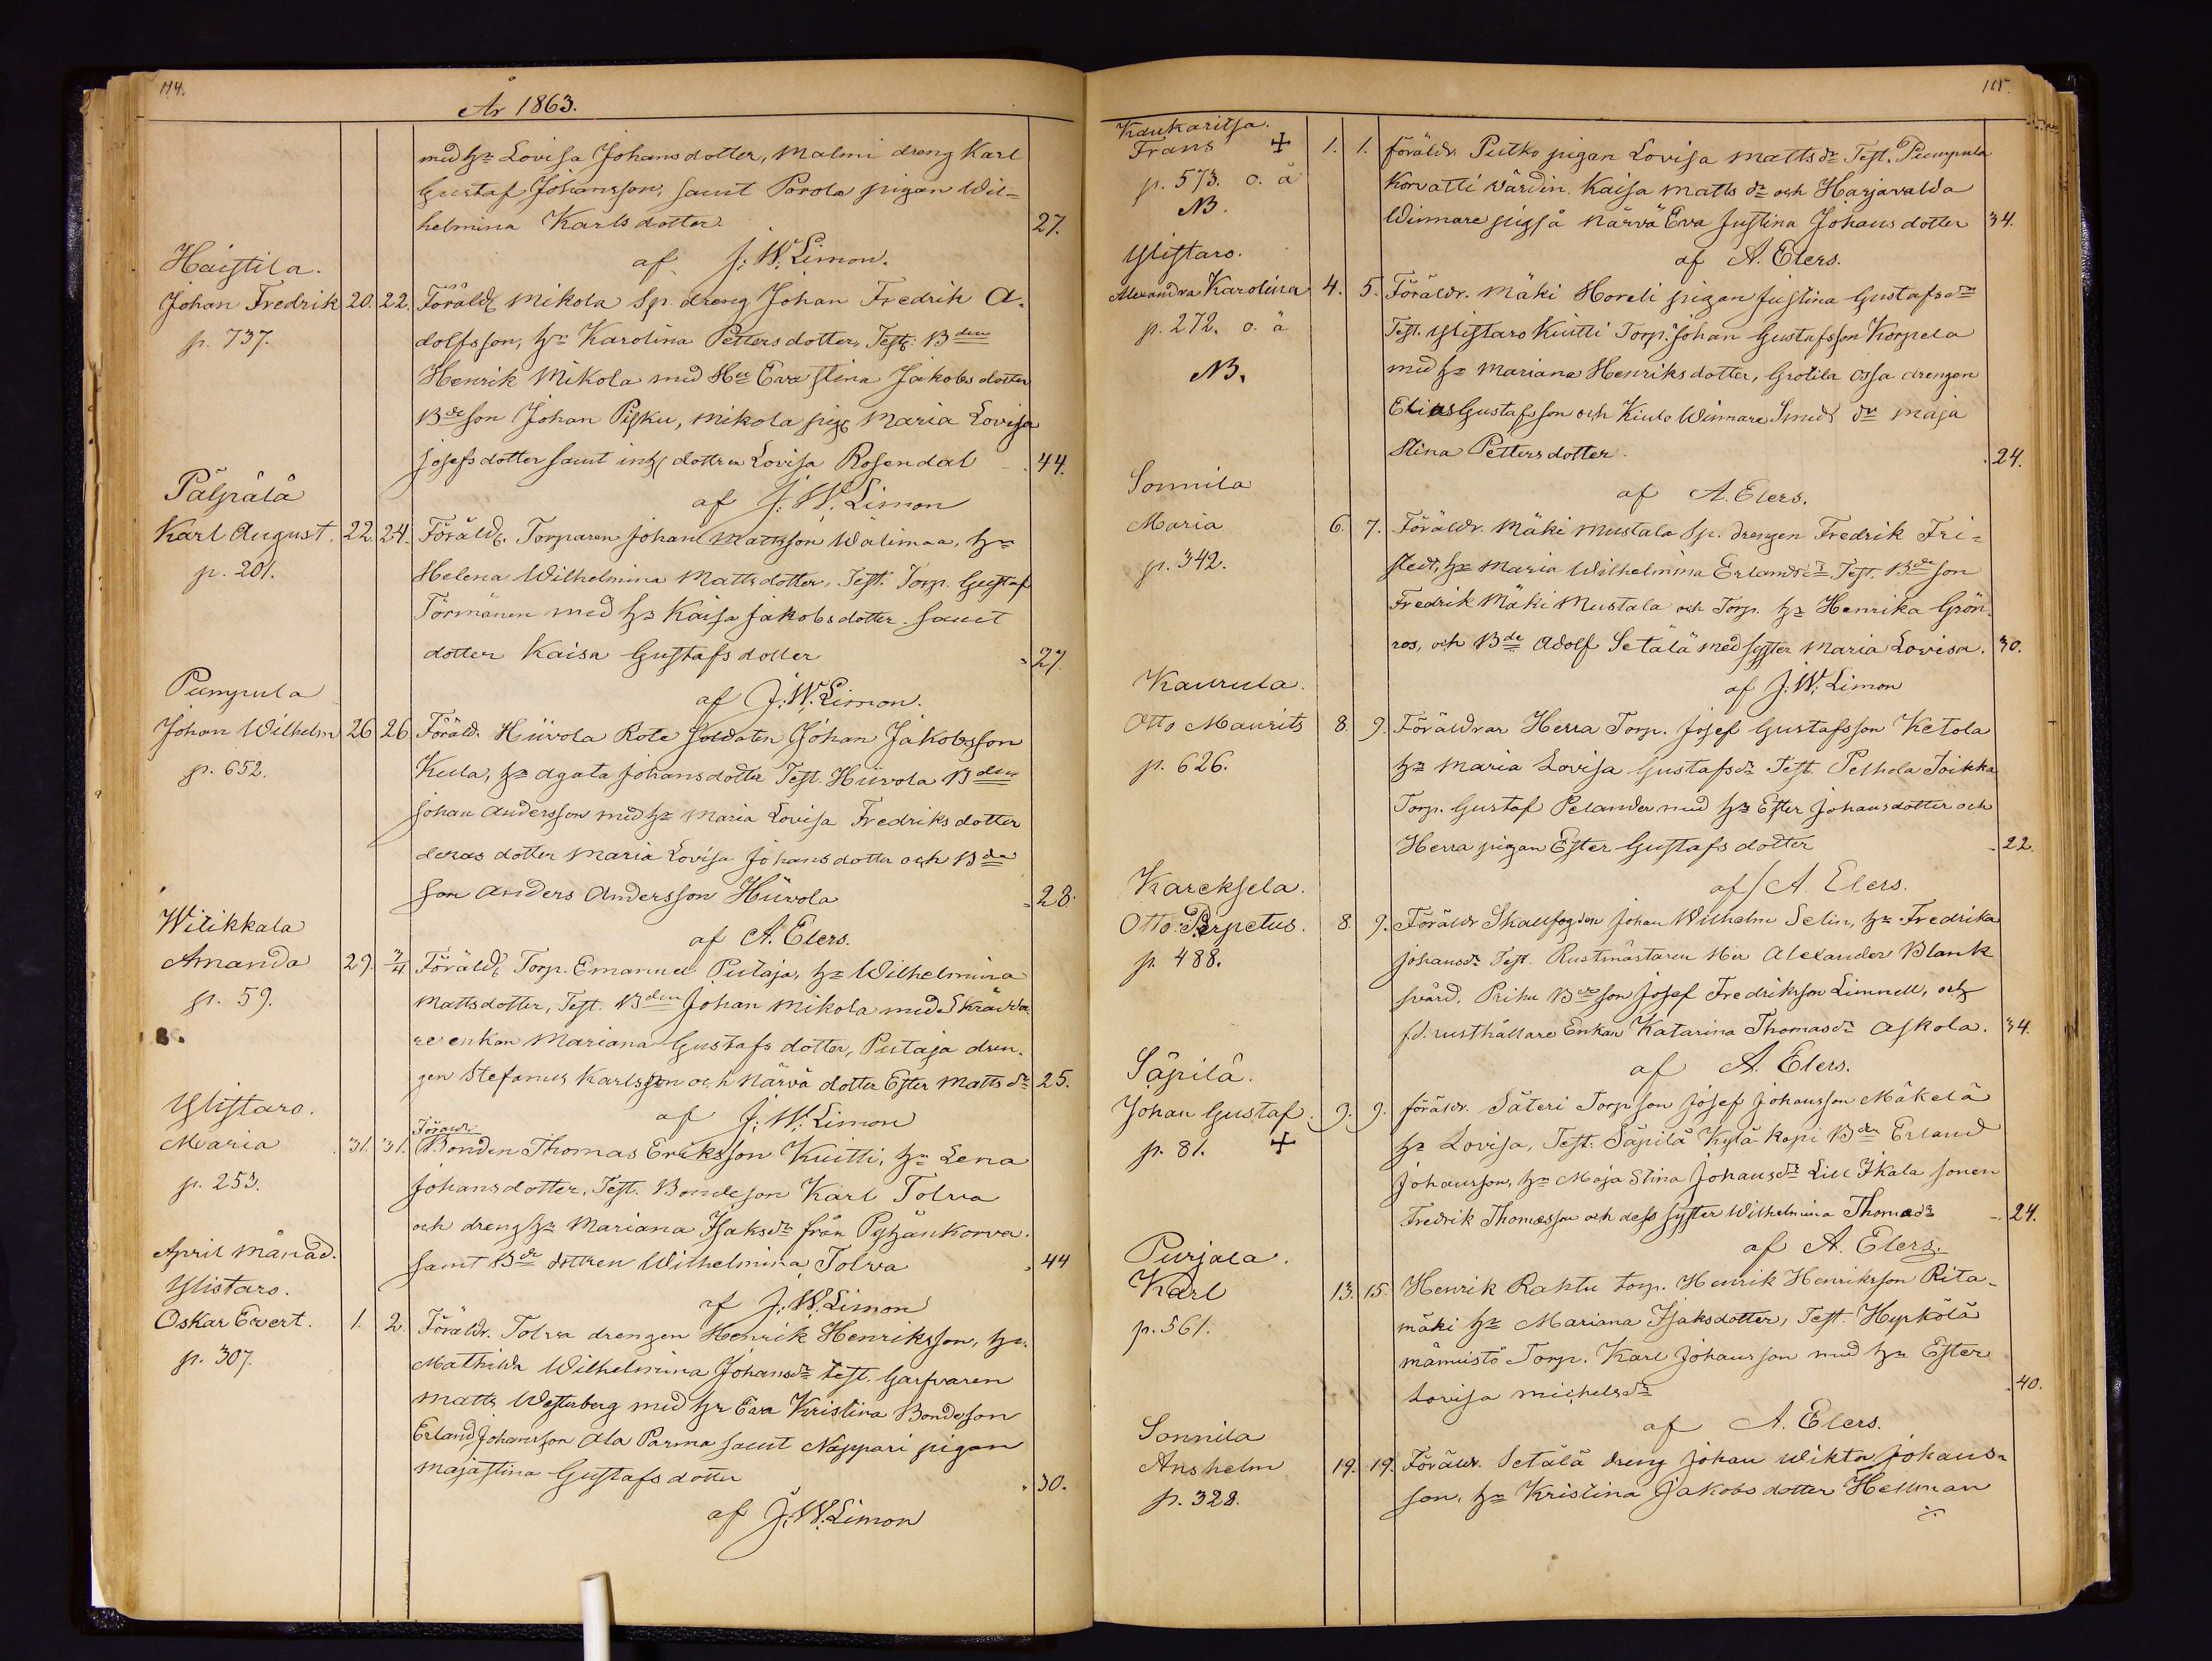 114.
År 1863.
med h:u Lovisa Johansdotter, Malmi dreng Karl
Gustaf Johansson, samt Porola pigan Wil=
helmina Karlsdotter. 27.
Haistila. af J. W. Limon.
Johan Fredrik 20. 22. Föräld. Mikola Sp. dreng Johan Fredrik A-
p. 737. dolfsson, h:u Karolina Pettersdotter, Test: Bden
Henrik Mikola med Hu Eva Stina Jakobsdotter
Bde son Johan Pisku, Mikola pig Maria Lovisa
Josefsdotter samt inh dottren Lovisa Rosendal 44.
Pälpälä af J. W. Limon
Karl August. 22. 24. Föräld. Torparen Johan Mattsson Wälimaa, hu
p. 201. Helena Wilhelmina Mattsdotter, Test. Torp. Gustaf
Törmänen med hu Kaisa Jakobsdotter samt
dotter Kaisa Gustafsdotter 27.
Pumpula af J. W. Limon.
Johan Wilhelm 26 26 Föräld. Hiivola Rote Soldaten Johan Jakobsson
p. 652. Kula, hu Agata Johansdotter Test. Hiivola Bden
Johan Andersson med hu Maria Lovisa Fredriksdotter
deras dotter Maria Lovisa Johansdotter och Bde
son Anders Andersson Hiivola 28.
Wilikkala af A. Elers.
Amanda 29. 3/4 Föräld. Torp. Emanuel Putaja, hu Wilhelmina
p. 59. Mattsdotter, Test. Bden Johan Mikola med Skrädda
re enkan Mariana Gustafsdotter, Putaja dren-
gen Stefanus Karlsson och Närvä dotter Ester Mattsdr 25.
Ylistaro. af J. W. Limon
Maria 31. 31. Föräldr. Bonden Thomas Eriksson Kuitti, hu Lena
p. 253. Johansdotter, Test. Bondeson Karl Tolva
och dreng hu Mariana Isaksdr från Pyhänkorva.
April månad. samt Bde dottren Wilhelmina Tolva 44
Ylistaro. af J. W. Limon
Oskar Evert. 1. 2 Föräldr. Tolva drengen Henrik Henriksson, hu
p. 307. Mathilda Wilhelmina Johansdr Test. Garfvaren
Matts Westerberg med hu Eva Kristina Bondeson
Erland Johansson Ala Parma samt Nappari pigan
Majastina Gustafsdotter 30.
af J. W. Limon
115.
Kaukaritsa.
Frans + 1. 1. föräldr. Putko pigan Lovisa Mattsdr Test. Pumpula
p. 573. o. ä Korvatti värdin. Kaisa Mattsdr och Harjavalda
NB. Winnare pigså Närvä Eva Justina Johansdotter 34.
Ylistaro. af A. Elers.
Alexandra Karolina 4. 5. Föräldr. Mäki Horeli pigan Justina Gustafsdr
p. 272. o. ä Test. Ylistaro Kuitti Torp. Johan Gustafsson Korpela
NB. med hu Mariana Henriksdotter, Grotila Ossa drengen
Elias Gustafsson och Kiulo Winnare Smed dr Maja
Stina Pettersdotter. 24.
Sonnila af A. Elers.
Maria 6. 7. Föräldr. Mäki Mustala Sp. drengen Fredrik Fri=
p. 342. stedt, hu Maria Wilhelmina Erlandsdr Test. Bde son
Fredrik Mäki Mustala och Torp. hu Henrika Grön-
ros, och Bde Adolf Setälä med syster Maria Lovisa. 30.
Kaurula. af J. W. Limon
Otto Maurits 8. 9. Föräldrar Herra Torp. Josef Gustafsson Ketola
p. 626. hu Maria Lovisa Gustafsdr Test. Pelhola Toikka
Torp. Gustaf Pelander med hu Ester Johansdotter och
Herra pigan Ester Gustafsdotter 22.
Kareksela. af A. Elers.
Otto Perpetus. 8. 9. Föräldr Skallfogden Johan Wilhelm Selin, hu Fredrika
p. 488. Johansdr Test. Rustmästaren Herr Alexander Blank
svärd, Prihu Bde son Josef Fredriksson Linnell, och
f.d. rusthållare Enkan Katarina Thomasdr Askola. 34.
Säpilä. af A. Elers.
Johan Gustaf 9. 9. föräldr. Säteri Torpson Josef Johansson Mäkelä
p. 81. + hu Lovisa, Test. Säpilä Kylä-kapi Bden Erland
Johansson, hu Maja Stina Johansdr Lill Ikala sonen
Fredrik Thomasson och dess syster Wilhelmina Thomasdr 24.
Purjala. af A. Elers.
Karl 13. 15. Henrik Rahtu torp. Henrik Henriksson Rita-
p. 561. mäki hu Mariana Isaksdotter, Test. Hyrkölä
mämistö Torp. Karl Johansson med hu Ester
Lovisa Michelsdr 40.
Sonnila af A. Elers.
Anshelm 19. 19. Föräldr. Setälä dreng Johan Wiktor Johans-
p. 328. son, hu Kristina Jakobsdotter Hellman